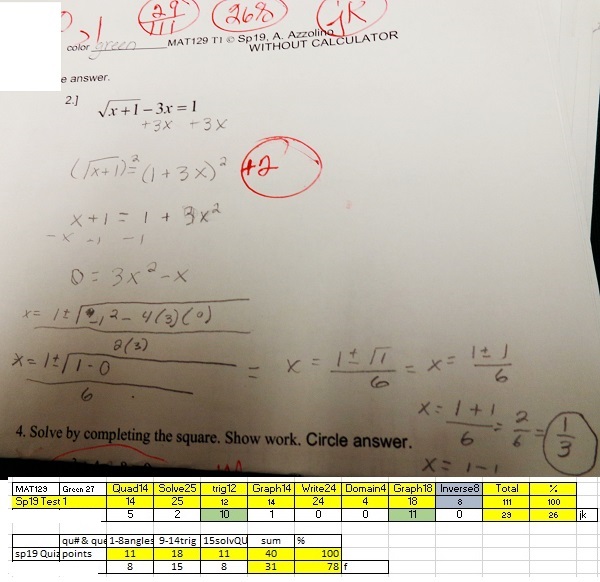 29/111 26% jk
color green MAT129 T1 © Sp19, A. Azzolino
WITHOUT CALCULATOR
e answer.
2.] √x+1 − 3x = 1
+3x +3x
(√x+1)² = (1+3x)² +2
x+1 = 1 + 3x²
-x -1 -1
0 = 3x² - x
x = 1 ± √ 1² - 4(3)(0)
2(3)
x = 1 ± √1-0 / 6 = x = 1 ± √1 / 6 = x = 1 ± 1 / 6
x = 1 + 1 / 6 = 2/6 = 1/3
4. Solve by completing the square. Show work. Circle answer.
x = 1-1
MAT129 Green 27 Quad14 Solve25 trig12 Graph14 Write24 Domain4 Graph18 Inverse8 Total %
Sp19 Test 1 14 25 12 14 24 4 18 8 111 100
5 2 10 1 0 0 11 0 29 26 jk
qu# & que 1-8angles 9-14trig 15solvQU sum %
sp19 Quiz points 11 18 11 40 100
8 15 8 31 78 f